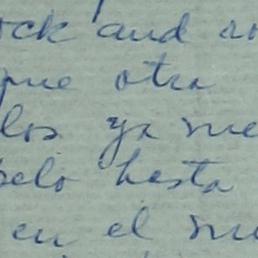 ock and ro
que otra
los ya me
pelo hasta
en el mu